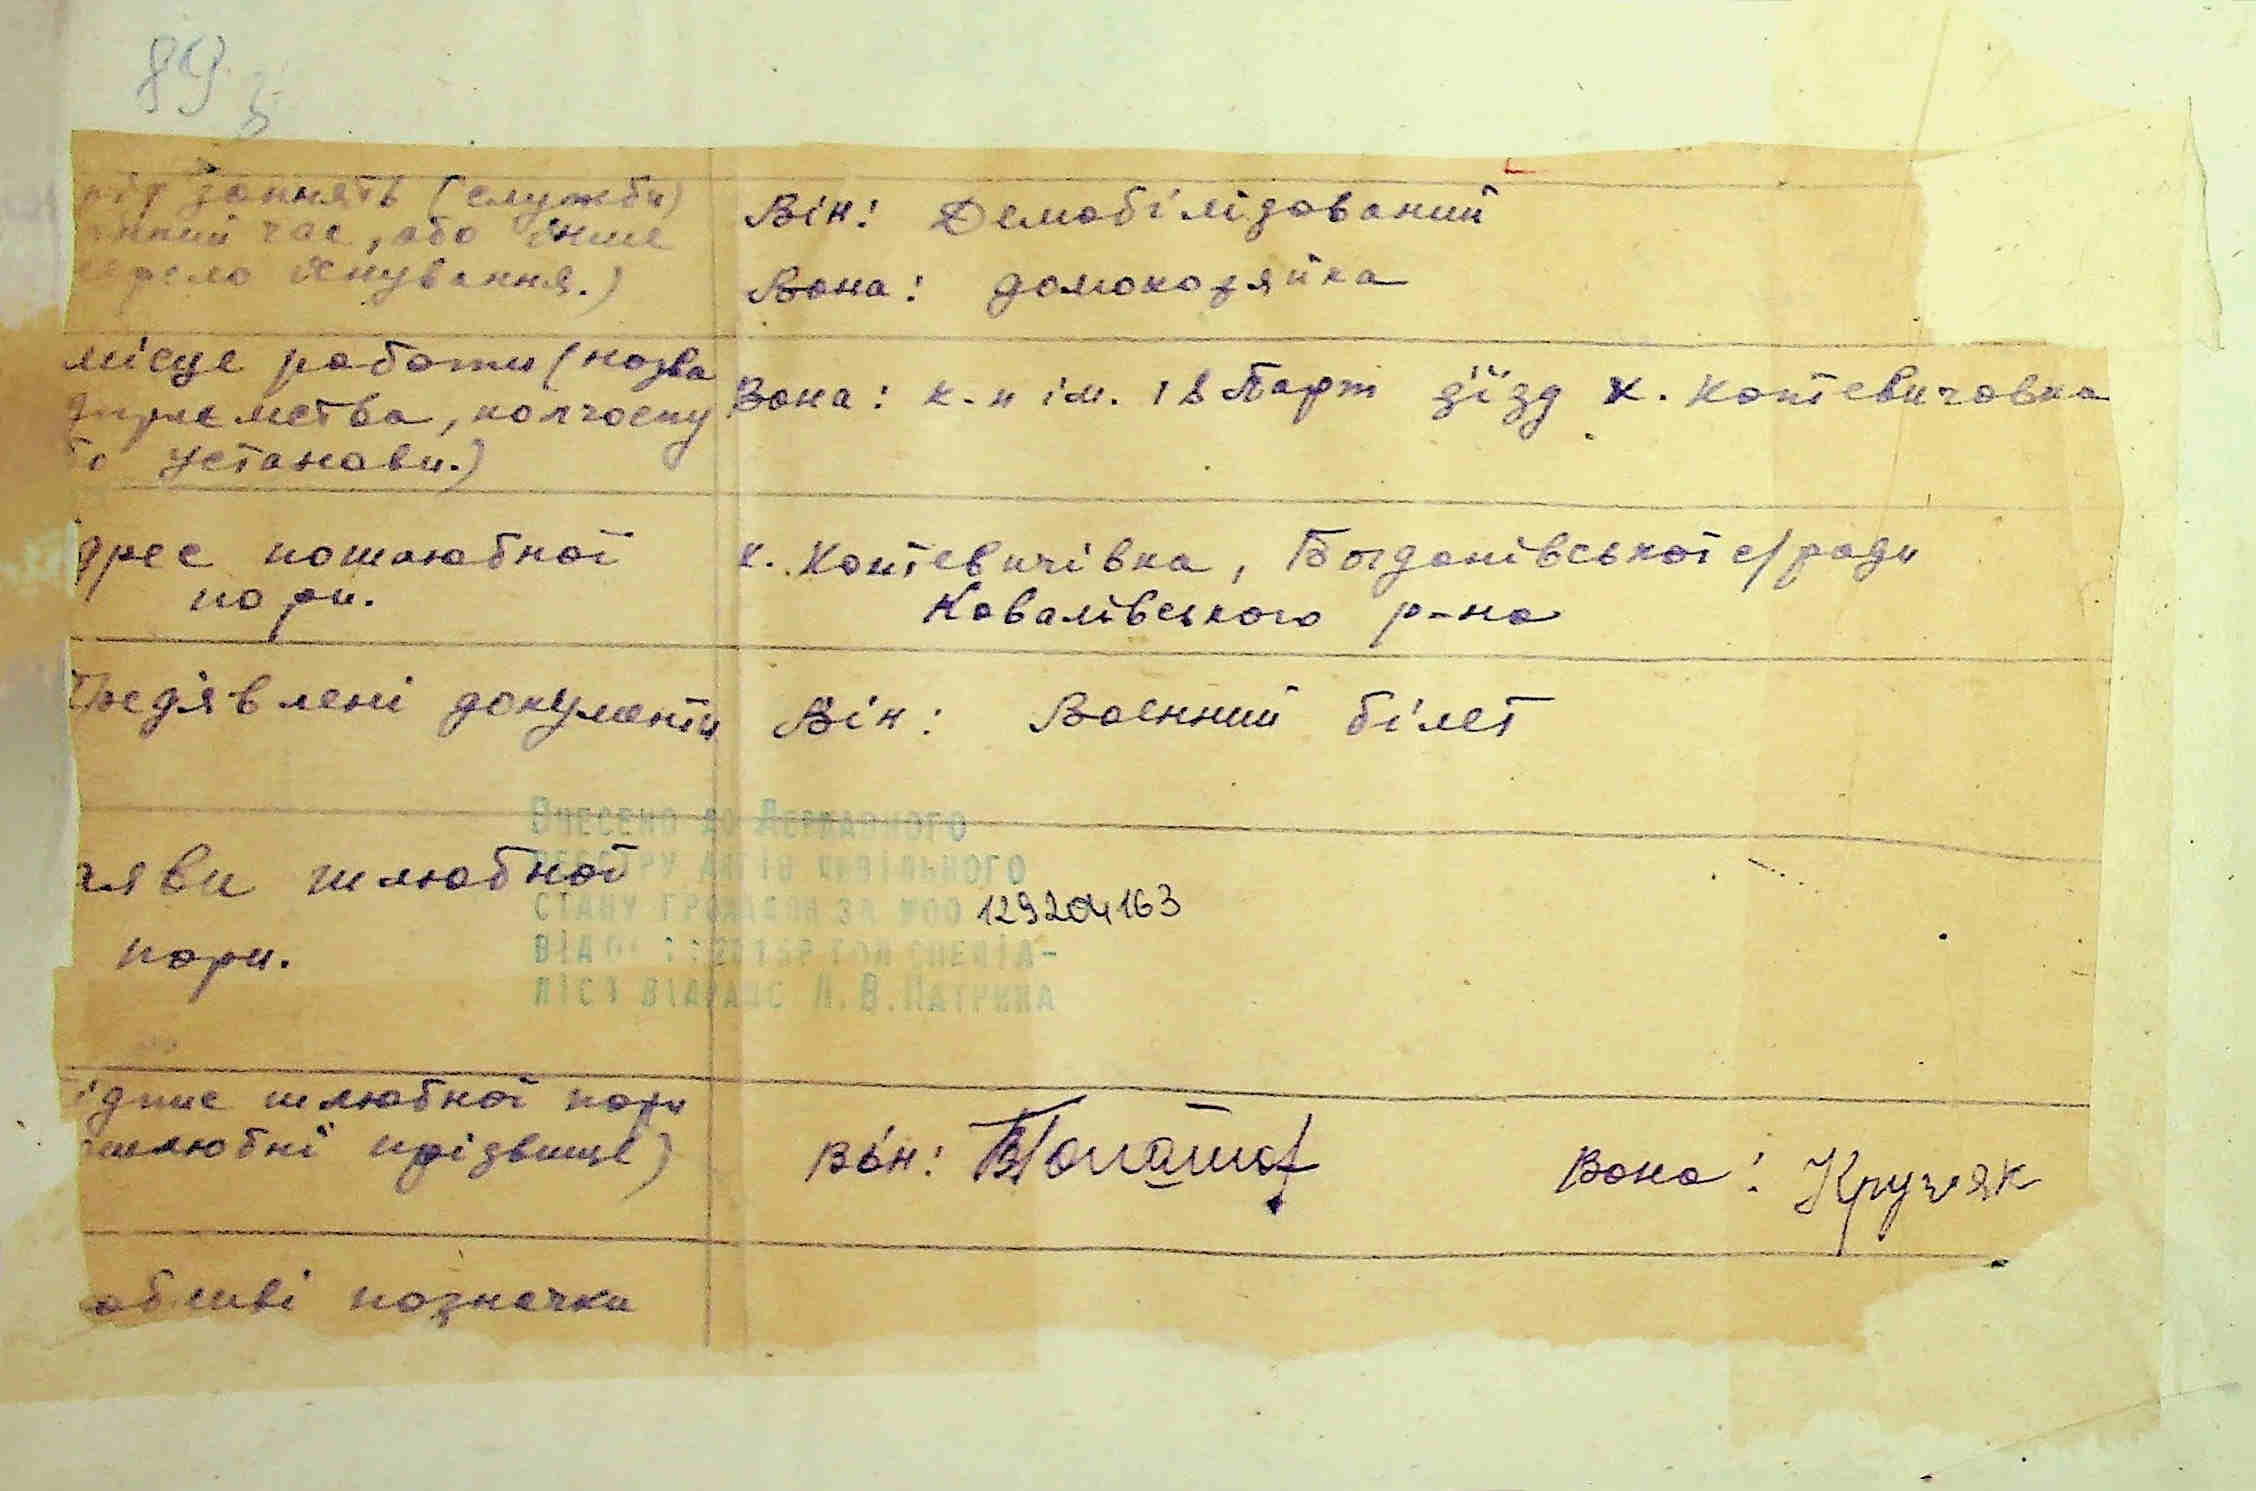 89 з
рід занять (служби)
нний час, або інше
жерело існування.)
Він: Демобілізований
Вона: домохозяйка
місце работи (назва
дприємства, колгоспу
бо установи.)
Вона: к-п ім. 18 Парт з'їзд х. Коптевичовка
дрес пошлюбної
пари.
х. Коптевичівка, Богданівської с/ради
Ковалівського р-на
Пред'явлені документи
Він: Воєнний білет
аяви шлюбної
пари.
Внесено до Державного
реєстру актів цивільного
стану громадян за №00 129204163
від
ліст ВДРАЦС Л.В.Патрина
ідпис шлюбної пари
шлюбні прізвище)
Він:
Вона: Кружяк
обливі позначки